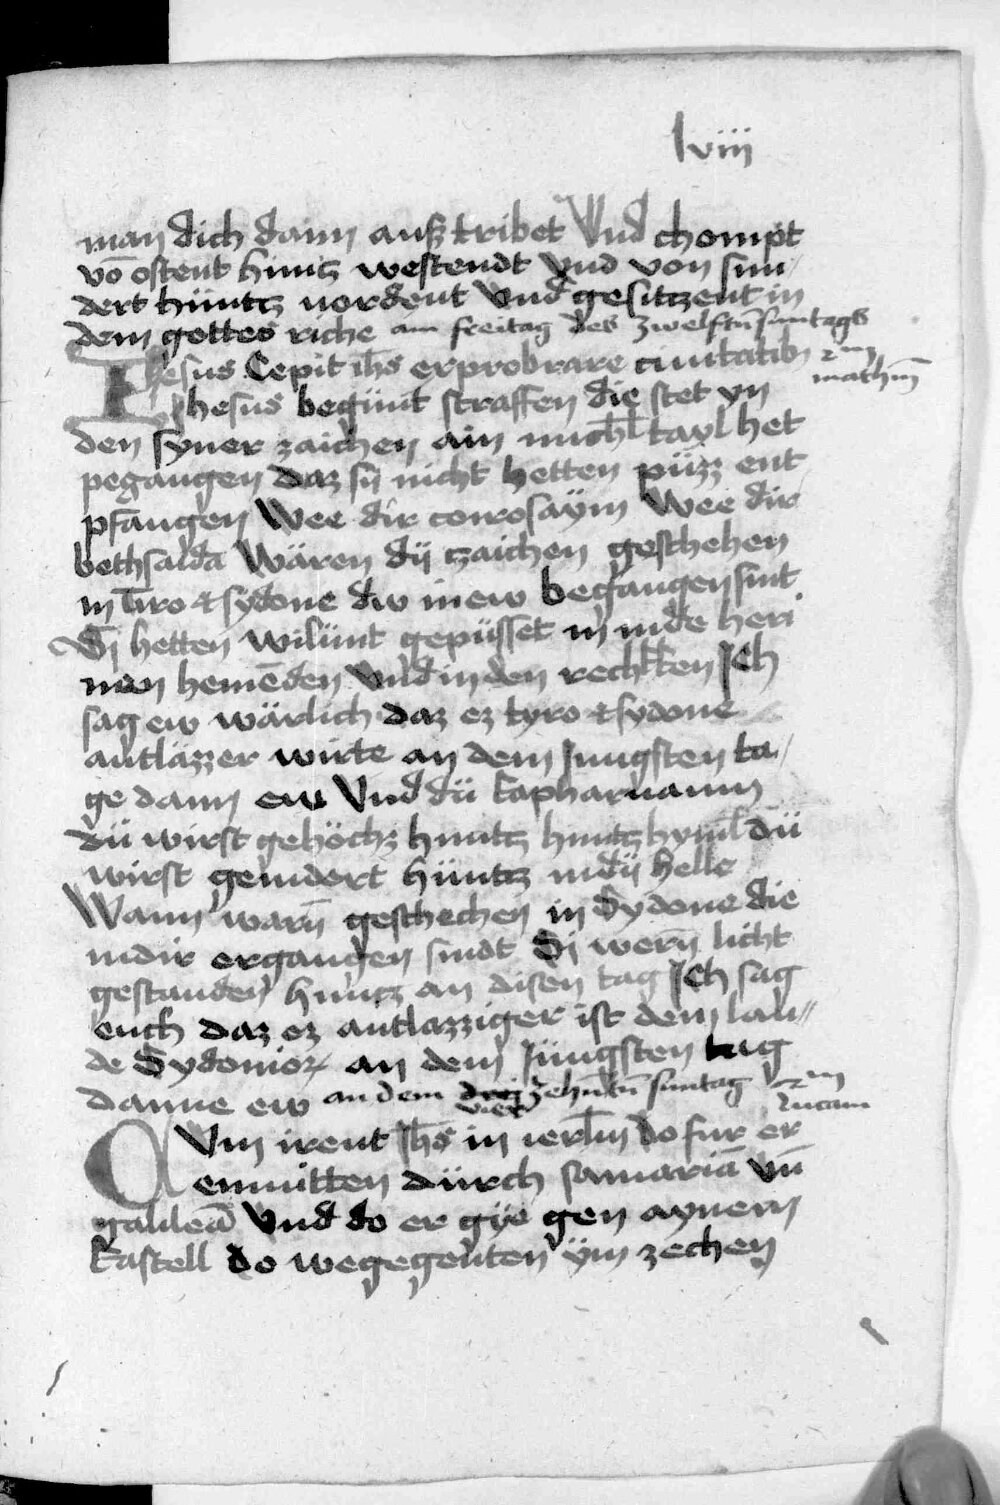 lviij
man dich dann auß tribet Vnd chompt
vō ostent hintz westendt vnd von sun/
dert hüntz nordent vnd gesitzent in
dem gottes riche am freitag des zwelftn̄ suntags
Ihesus Cepit ih̄s exprobrare ciuitatib9 zm̄
Ihesus begünt straffen die stet yn matheū
den syner zaichen ain mich̄l tayl het
pegangen daz sy nicht hetten püzz ent
pfangen Wee dir corosaym Wee dir
bethsaida Wären dÿ tzaichen geschehen
in tiro et sydone dw in ew begangen sint
Dÿ hetten wilünt gepüsset in in de heri
nen hemēden vnd in den rechtten Ich
sag ew wärlich daz ez tyro et sydone
antläzzer wirte an dem Jungsten ta/
ge dann ew Vnd dü kapharnaum
dü wirst gehöchz huntz huntz hym̄l dü
wirst genidert hüntz in dÿ helle
Wann warn̄ geschechen in Sydone die
in dir ergangen sindt Di wern̄ licht
gestanden huntz an disen tag Ich sag
euch daz ez antlazziger ist dem lan//
de Sydonior̄ an dem Jüngsten tag
danne ew an dem vierzehntn̄ suntag zm̄ lucam
Vm irent Ih̄s in ierl̄m do fur er
enmitten dürch samariā vn̄
galileā Vnd do er gÿe gen aynem
kastell do wegegenten ÿm zechen